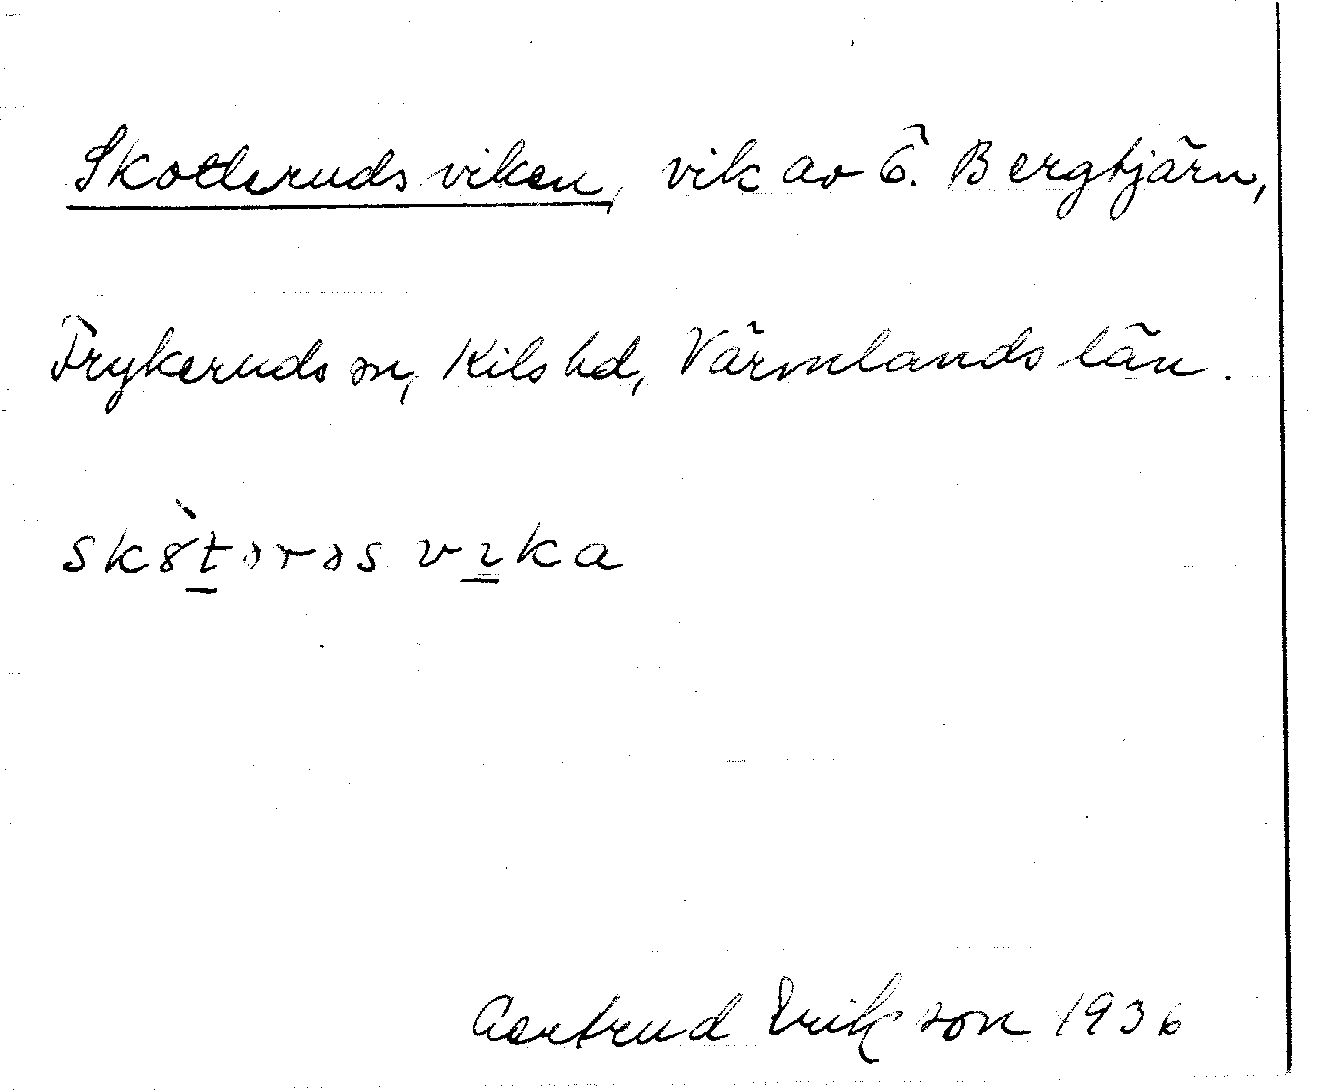 Skotterudsviken, vik av Ö. Bergtjärn,
Frykeruds sn, Kils hd, Värmlands län.
sk8̀tərəs vıka
Gertrud Erikson 1936